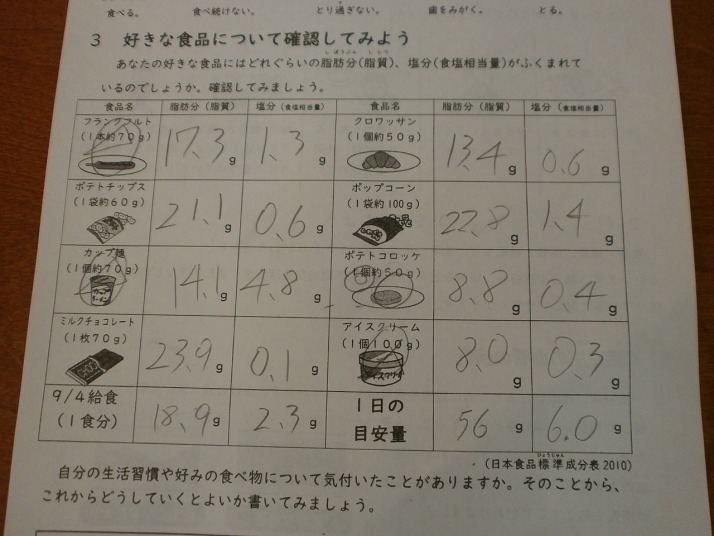 食べる。 食べ続けない。 とり過ぎない。 歯をみがく。 とる。
3 好きな食品について確認してみよう
あなたの好きな食品にはどれぐらいの脂肪分(脂質)、塩分(食塩相当量)がふくまれて
いるのでしょうか。確認してみましょう。
食品名 脂肪分(脂質) 塩分(食塩相当量) 食品名 脂肪分(脂質) 塩分(食塩相当量)
フランクフルト クロワッサン
(1本約70g) 17.3g 1.3g (1個約50g) 13.4g 0.6g
ポテトチップス ポップコーン
(1袋約60g) 21.1g 0.6g (1袋約100g) 22.8g 1.4g
カップ麺 ポテトコロッケ
(1個約70g) 14.1g 4.8g (1個約50g) 8.8g 0.4g
ミルクチョコレート アイスクリーム
(1枚70g) 23.9g 0.1g (1個100g) 8.0g 0.3g
9/4給食 1日の
(1食分) 18.9g 2.3g 目安量 56g 6.0g
(日本食品標準成分表2010)
自分の生活習慣や好みの食べ物について気付いたことがありますか。そのことから、
これからどうしていくとよいか書いてみましょう。